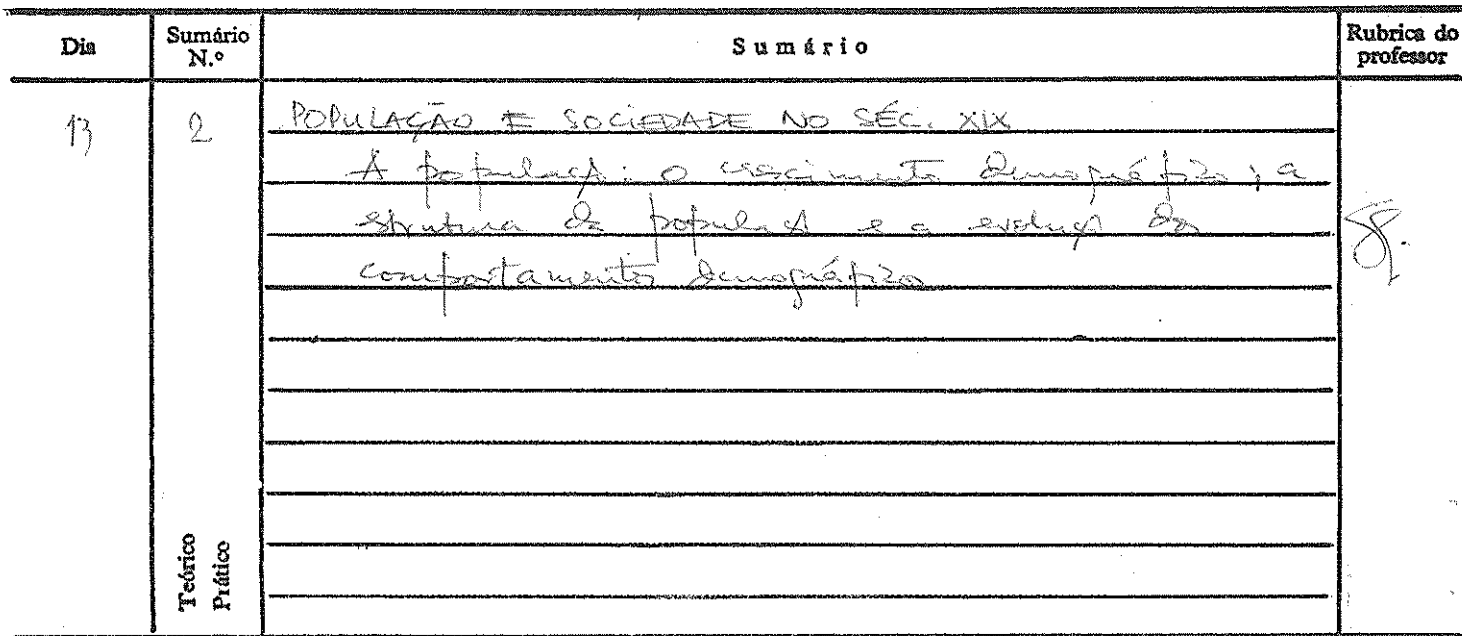 Dia
Sumário N.º
Sumário
Rubrica do professor
13
2
POPULAÇÃO E SOCIEDADE NO SÉC. XIX
A populaçã: o crescimento demográfico; a
estrutura da populaçã e a evoluçã do
comportamento demográfico
Teórico
Prático